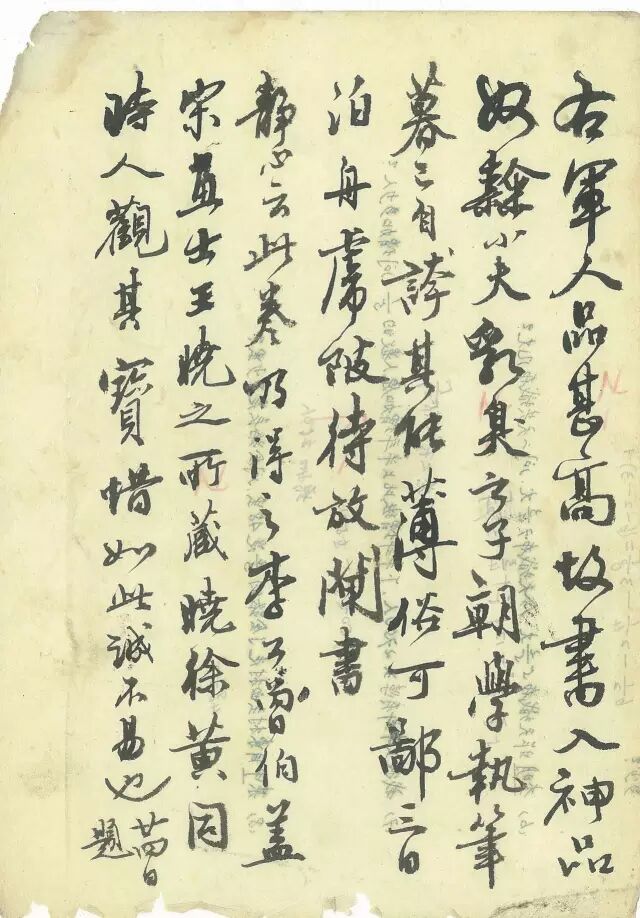 右軍人品甚高故書入神品
奴隸小夫乳臭之子朝學執筆
暮已自誇其能薄俗可鄙三日
泊舟虎陂待放閘書
靜心云此卷乃得之李公曾伯蓋
宋畫士王曉之所藏曉徐黃同
時人觀其寶惜如此誠不易也
廿四日
題